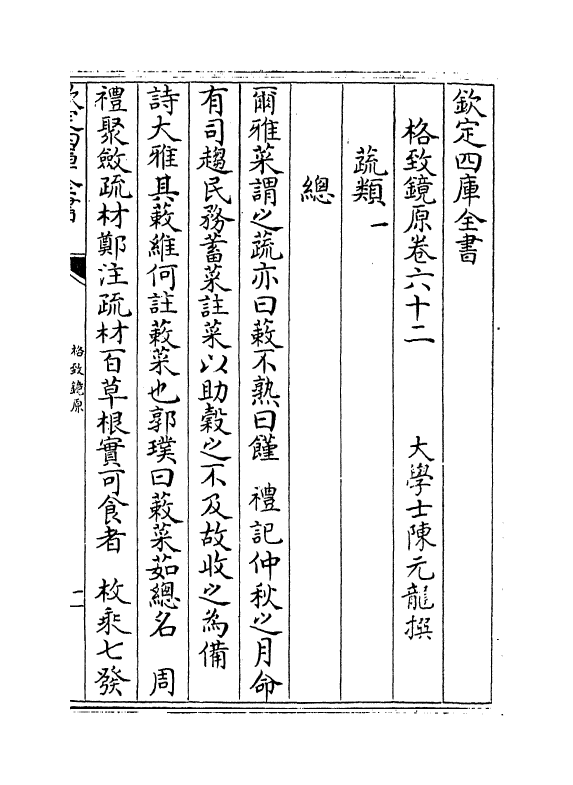 欽定四庫全書
格致鏡原卷六十二
大學士陳元龍撰
蔬類一
總
爾雅菜謂之蔬亦曰蔌不熟曰饉　禮記仲秋之月命
有司趨民務蓄菜註菜以助穀之不及故收之為備
詩大雅其蔌維何註蔌菜也郭璞曰蔌菜茹總名　周
禮聚斂疏材鄭注疏材百草根實可食者　枚乘七發
欽定四庫全書
格致鏡原
二